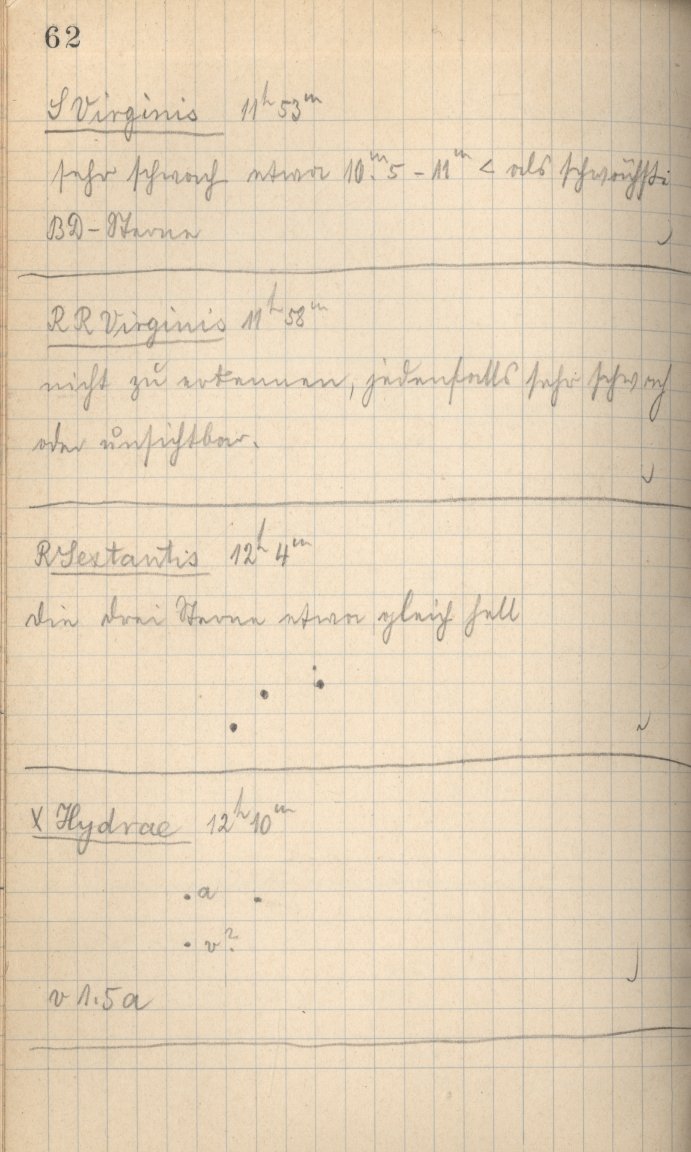 62
S Virginis 11h 53m
sehr schwach etwa 10.m5 - 11m < als schwächste
BD-Sterne
RR Virginis 11h 58m
nicht zu erkennen, jedenfalls sehr schwach
oder unsichtbar.
R Sextantis 12h 4m
die drei Sterne etwa gleich hell
X Hydrae 12h 10m
a
v?
v 1.5 a